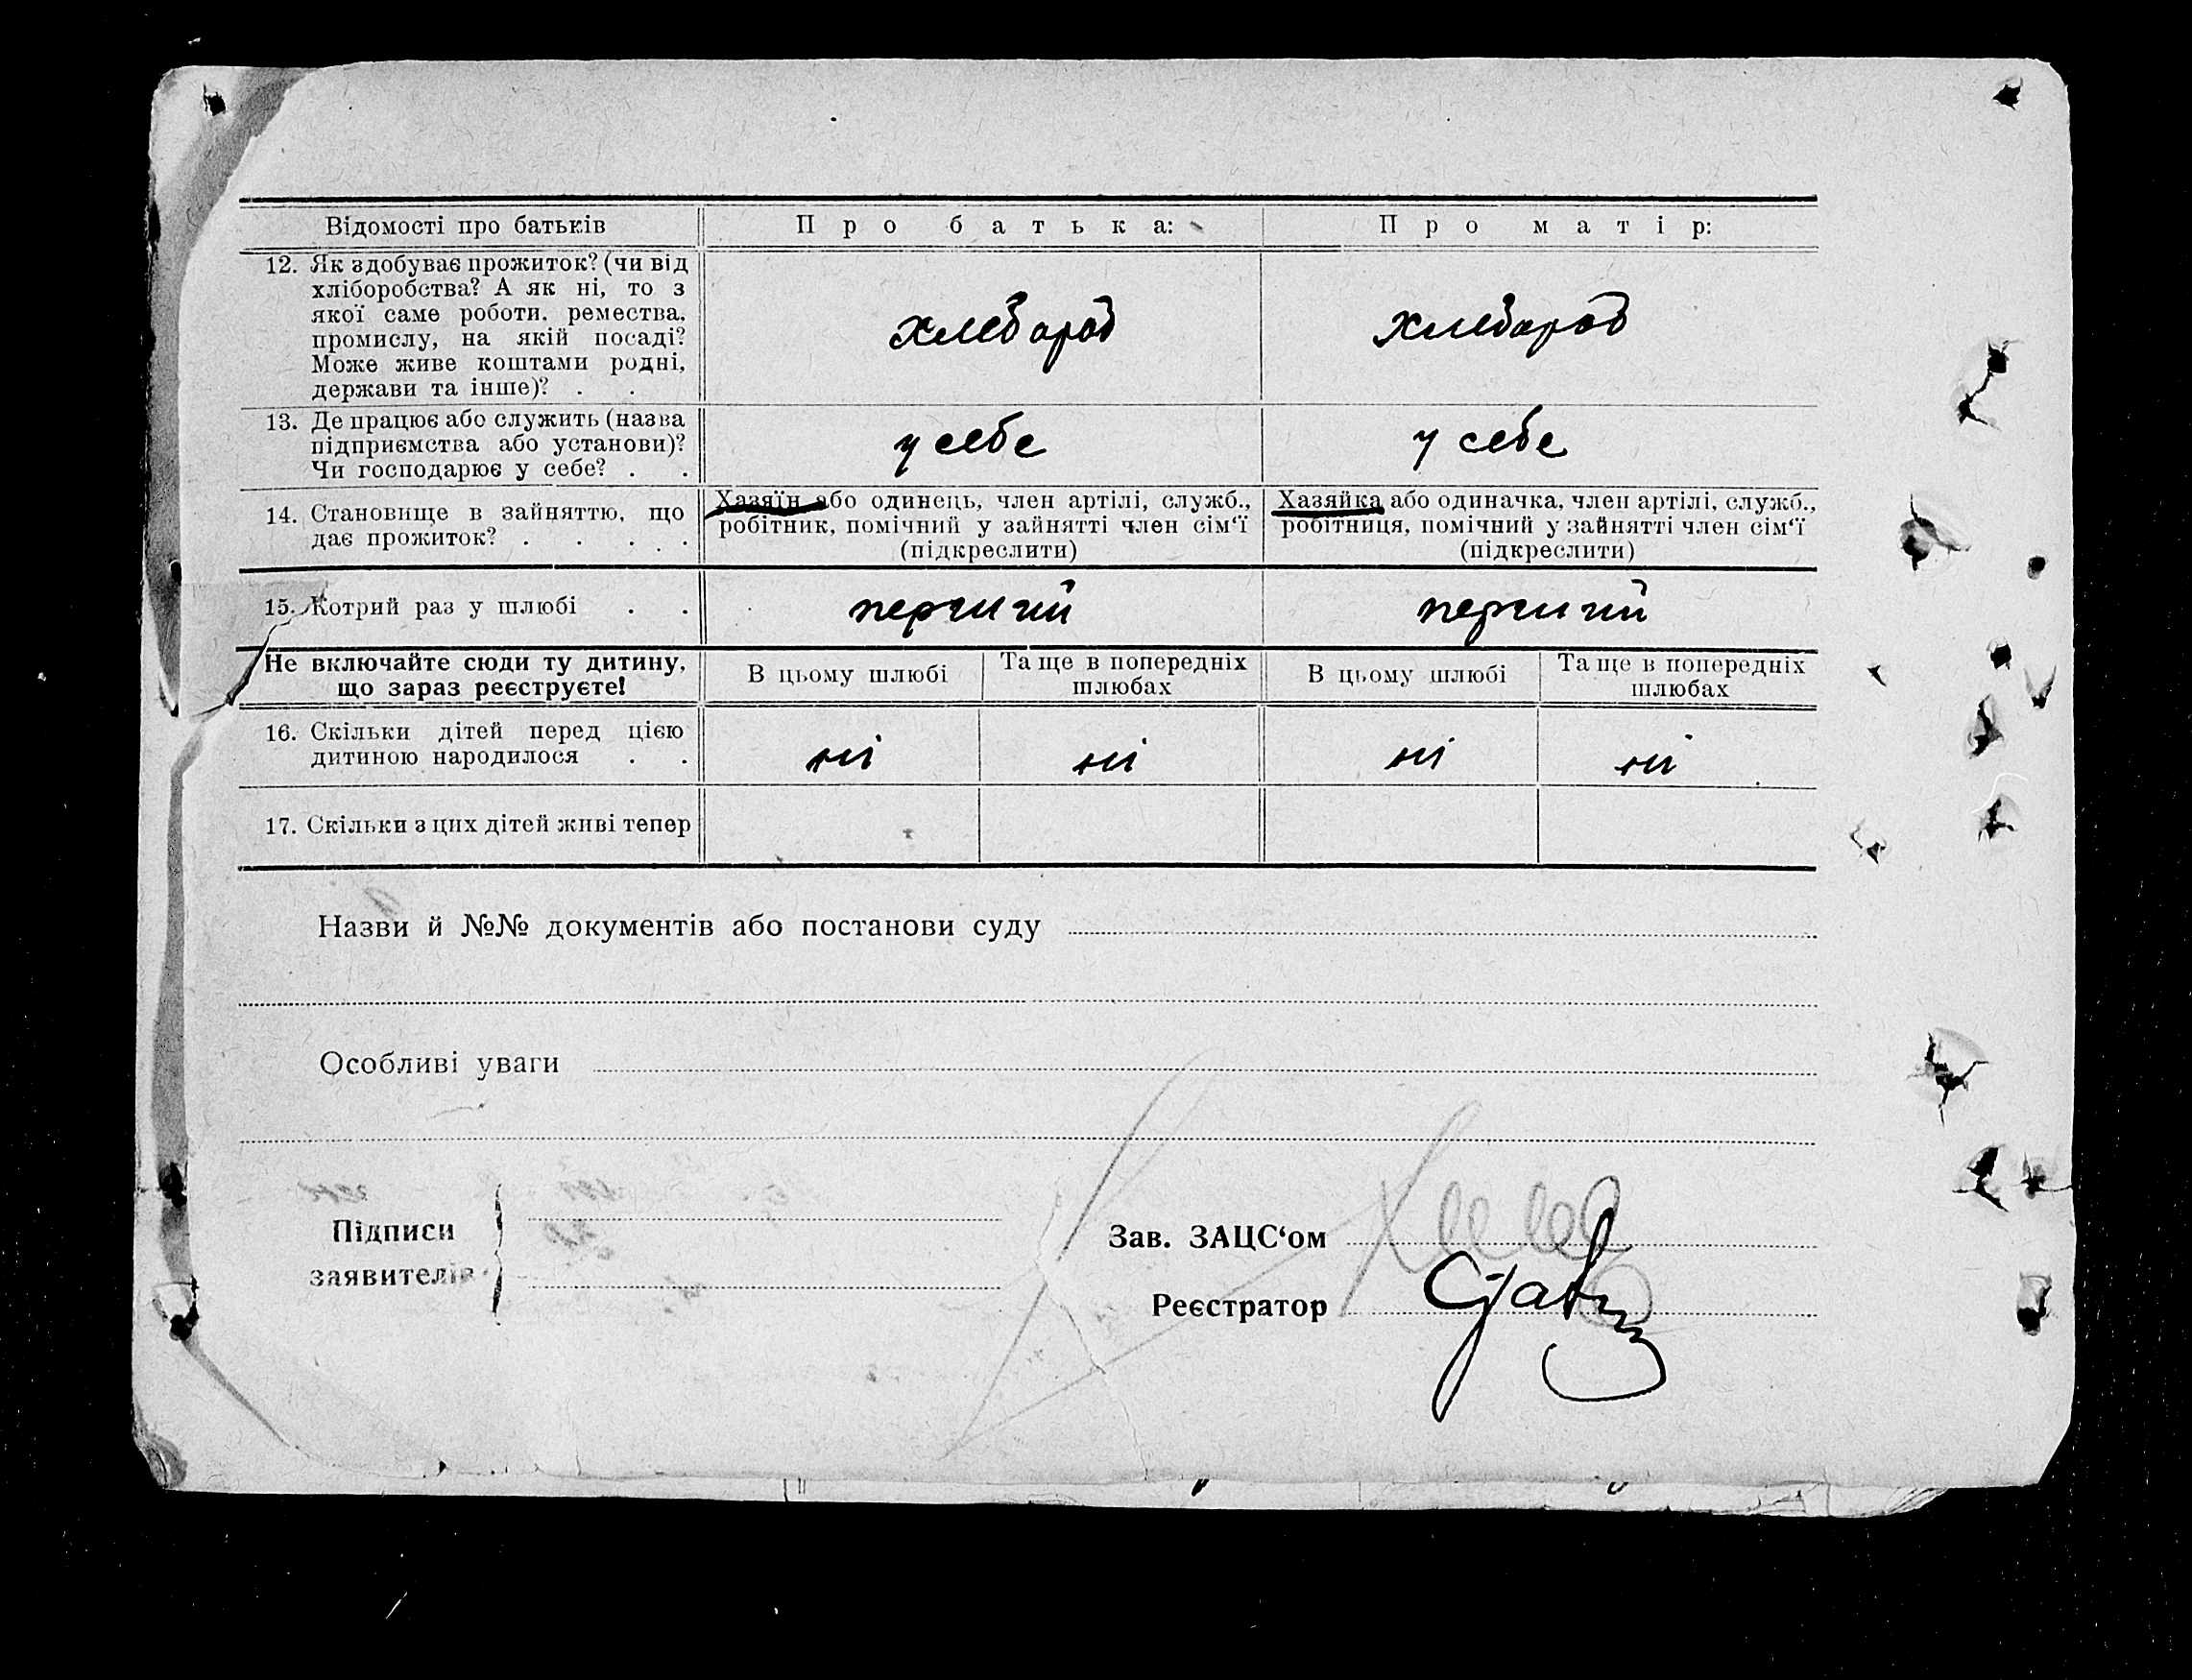 Відомості про батьків Про батька: Про матір:
12. Як здобуває прожиток? (чи від
хліборобства? А як ні, то з
якої саме роботи, ремества,
промислу, на якій посаді?
Може живе коштами родні,
держави та інше)? . .
хлебороб хлебороб
13. Де працює або служить (назва
підприємства або установи)?
Чи господарює у себе? . .
у себе у себе
14. Становище в зайняттю, що
дає прожиток? . . . .
Хазяїн або одинець, член артілі, служб.,
робітник, помічний у зайнятті член сім‘ї
(підкреслити)
Хазяйка або одиначка, член артілі, служб.,
робітниця, помічний у зайнятті член сім‘ї
(підкреслити)
15. Котрий раз у шлюбі . . перший перший
Не включайте сюди ту дитину,
що зараз реєструєте!
В цьому шлюбі
Та ще в попередніх
шлюбах
В цьому шлюбі
Та ще в попередніх
шлюбах
16. Скільки дітей перед цією
дитиною народилося . .
ні ні ні ні
17. Скільки з цих дітей живі тепер
Назви й №№ документів або постанови суду
Особливі уваги
Підписи
заявителів
Зав. ЗАЦС‘ом
Реєстратор